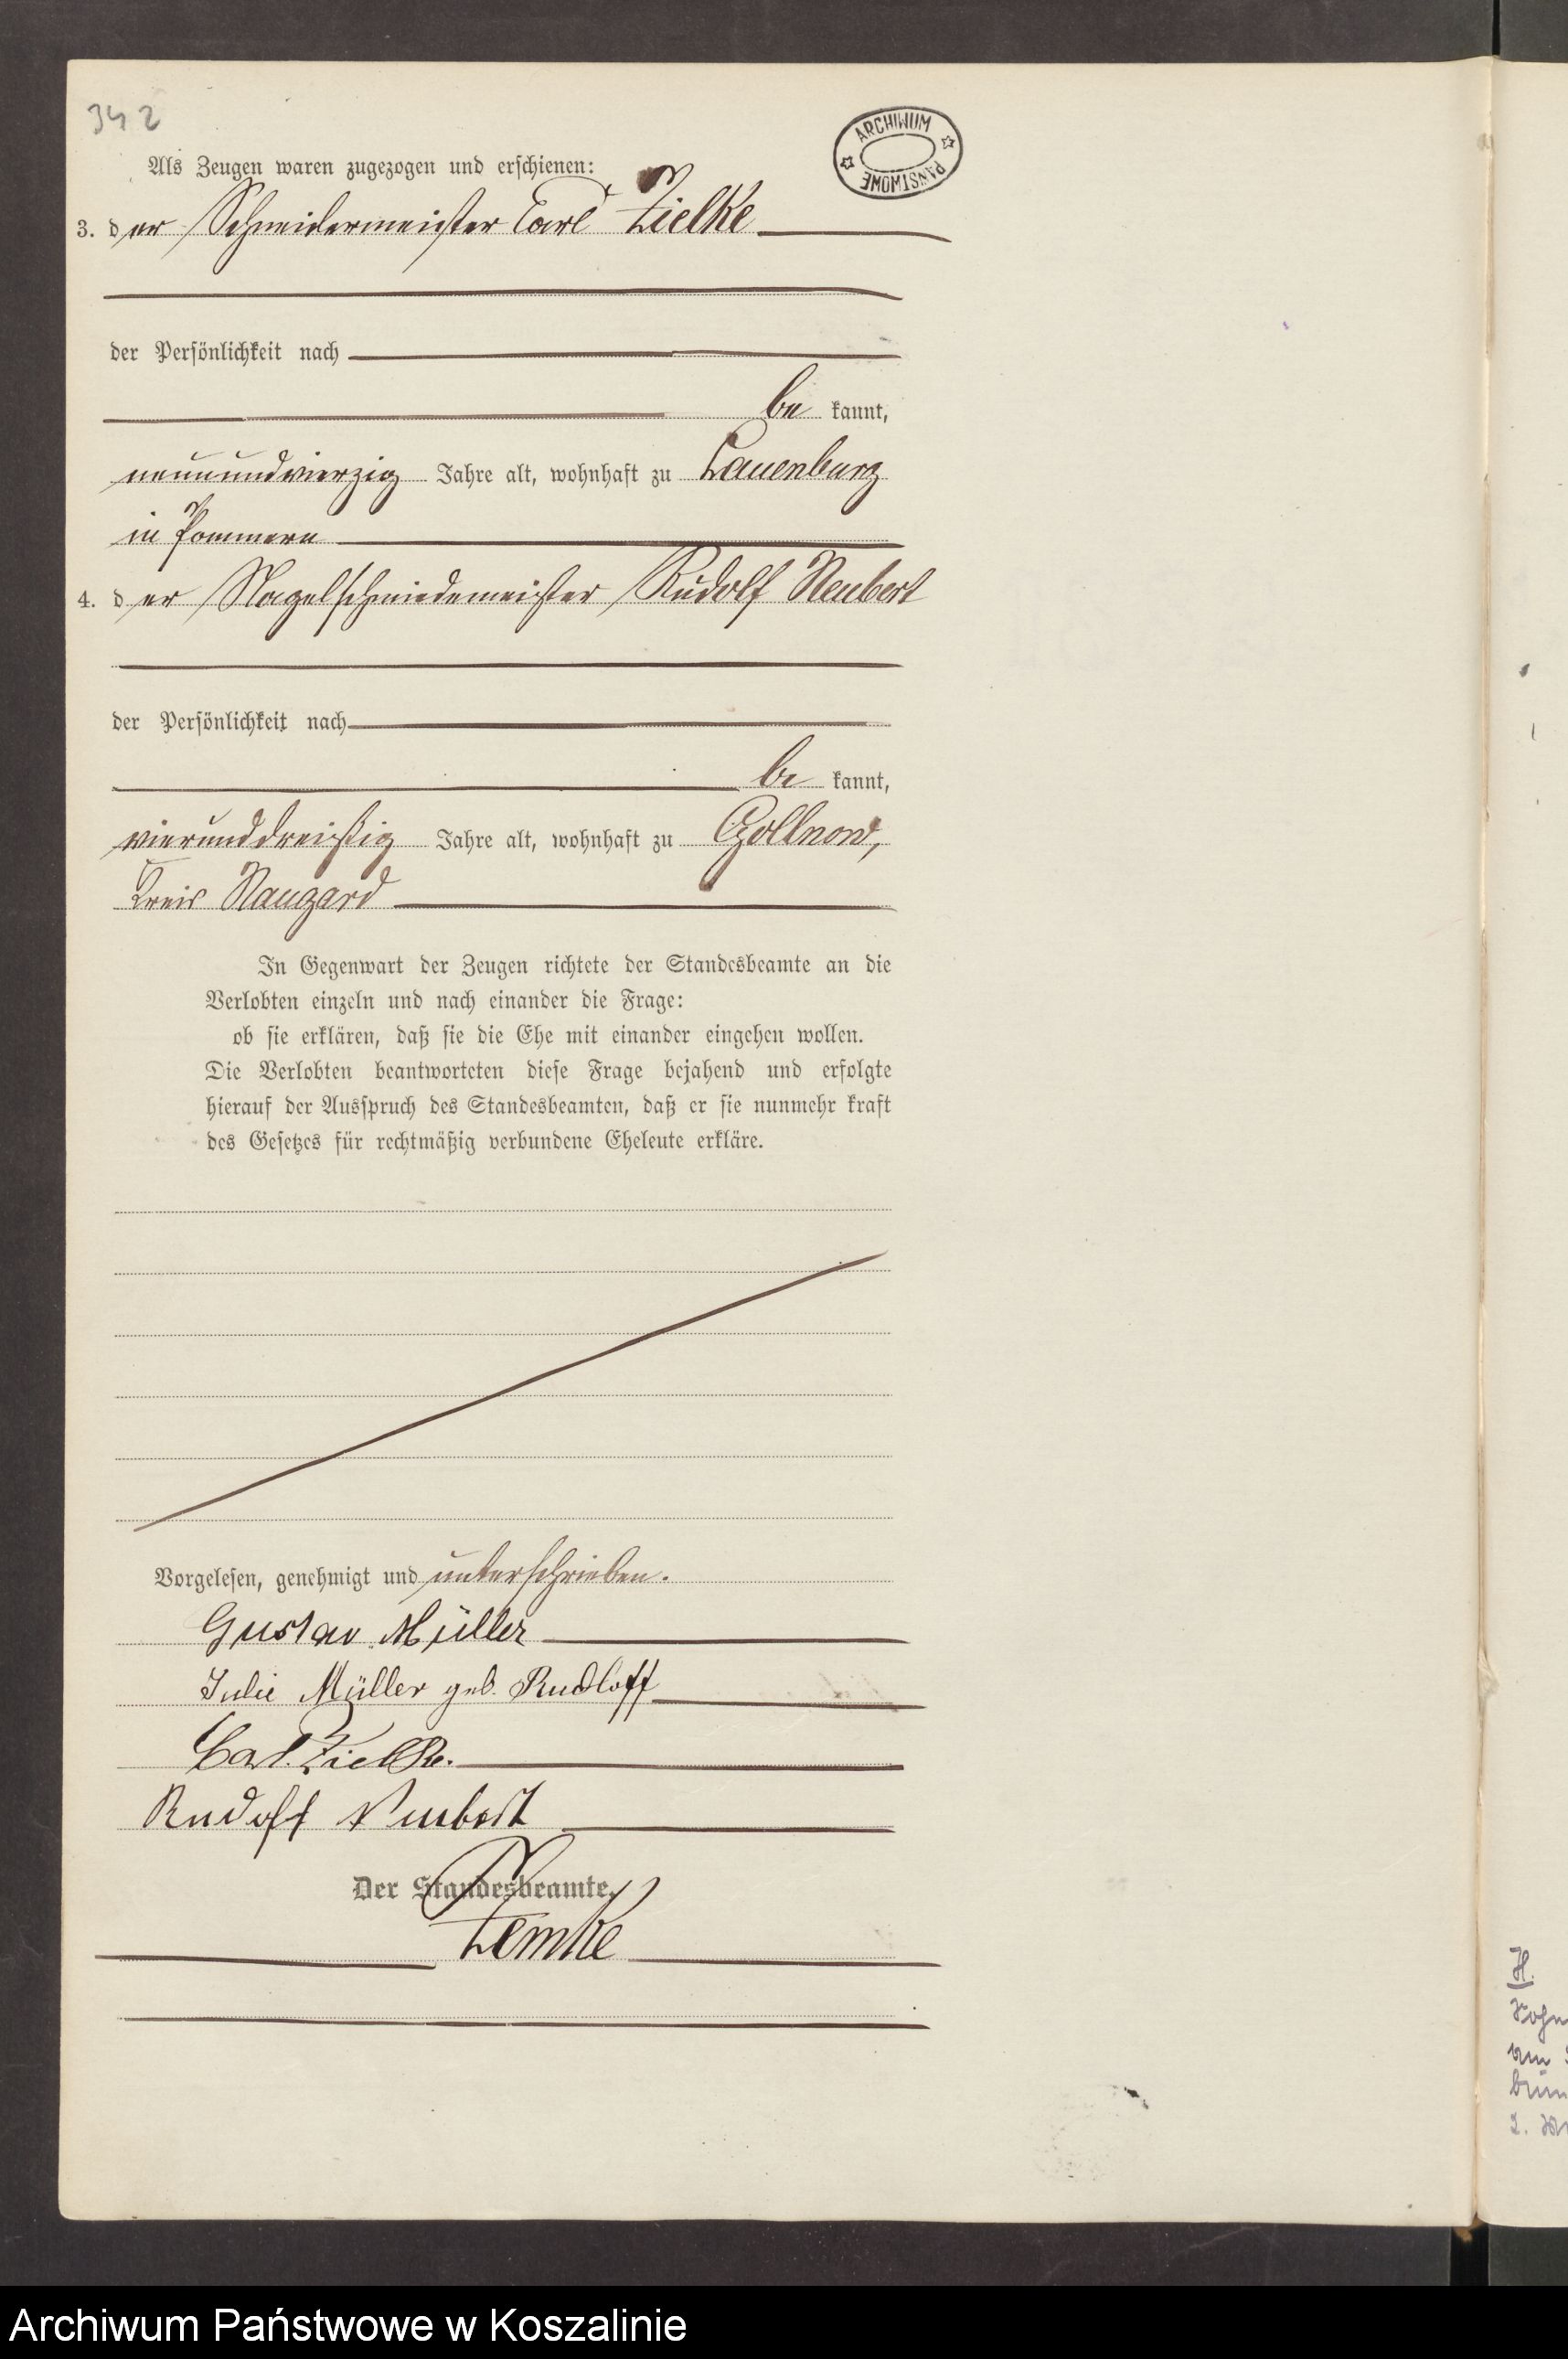 342
ARCHIWUM PAŃSTWOWE
Als Zeugen waren zugezogen und erschienen:
3. der Schneidermeister Carl Zielke
der Persönlichkeit nach
be kannt,
neunundvierzig Jahre alt, wohnhaft zu Lauenburg
in Pommern
4. der Nagelschmiedemeister Rudolf Neubert
der Persönlichkeit nach
be kannt,
vierunddreißig Jahre alt, wohnhaft zu Gollnow,
Kreis Naugard
In Gegenwart der Zeugen richtete der Standesbeamte an die
Verlobten einzeln und nach einander die Frage:
ob sie erklären, daß sie die Ehe mit einander eingehen wollen.
Die Verlobten beantworteten diese Frage bejahend und erfolgte
hierauf der Ausspruch des Standesbeamten, daß er sie nunmehr kraft
des Gesetzes für rechtmäßig verbundene Eheleute erkläre.
Vorgelesen, genehmigt und unterschrieben.
Gustav Müller
Julie Müller geb. Rudloff
Carl Zielke.
Rudolf Neubert
Der Standesbeamte.
Zemke
H.
Archiwum Państwowe w Koszalinie